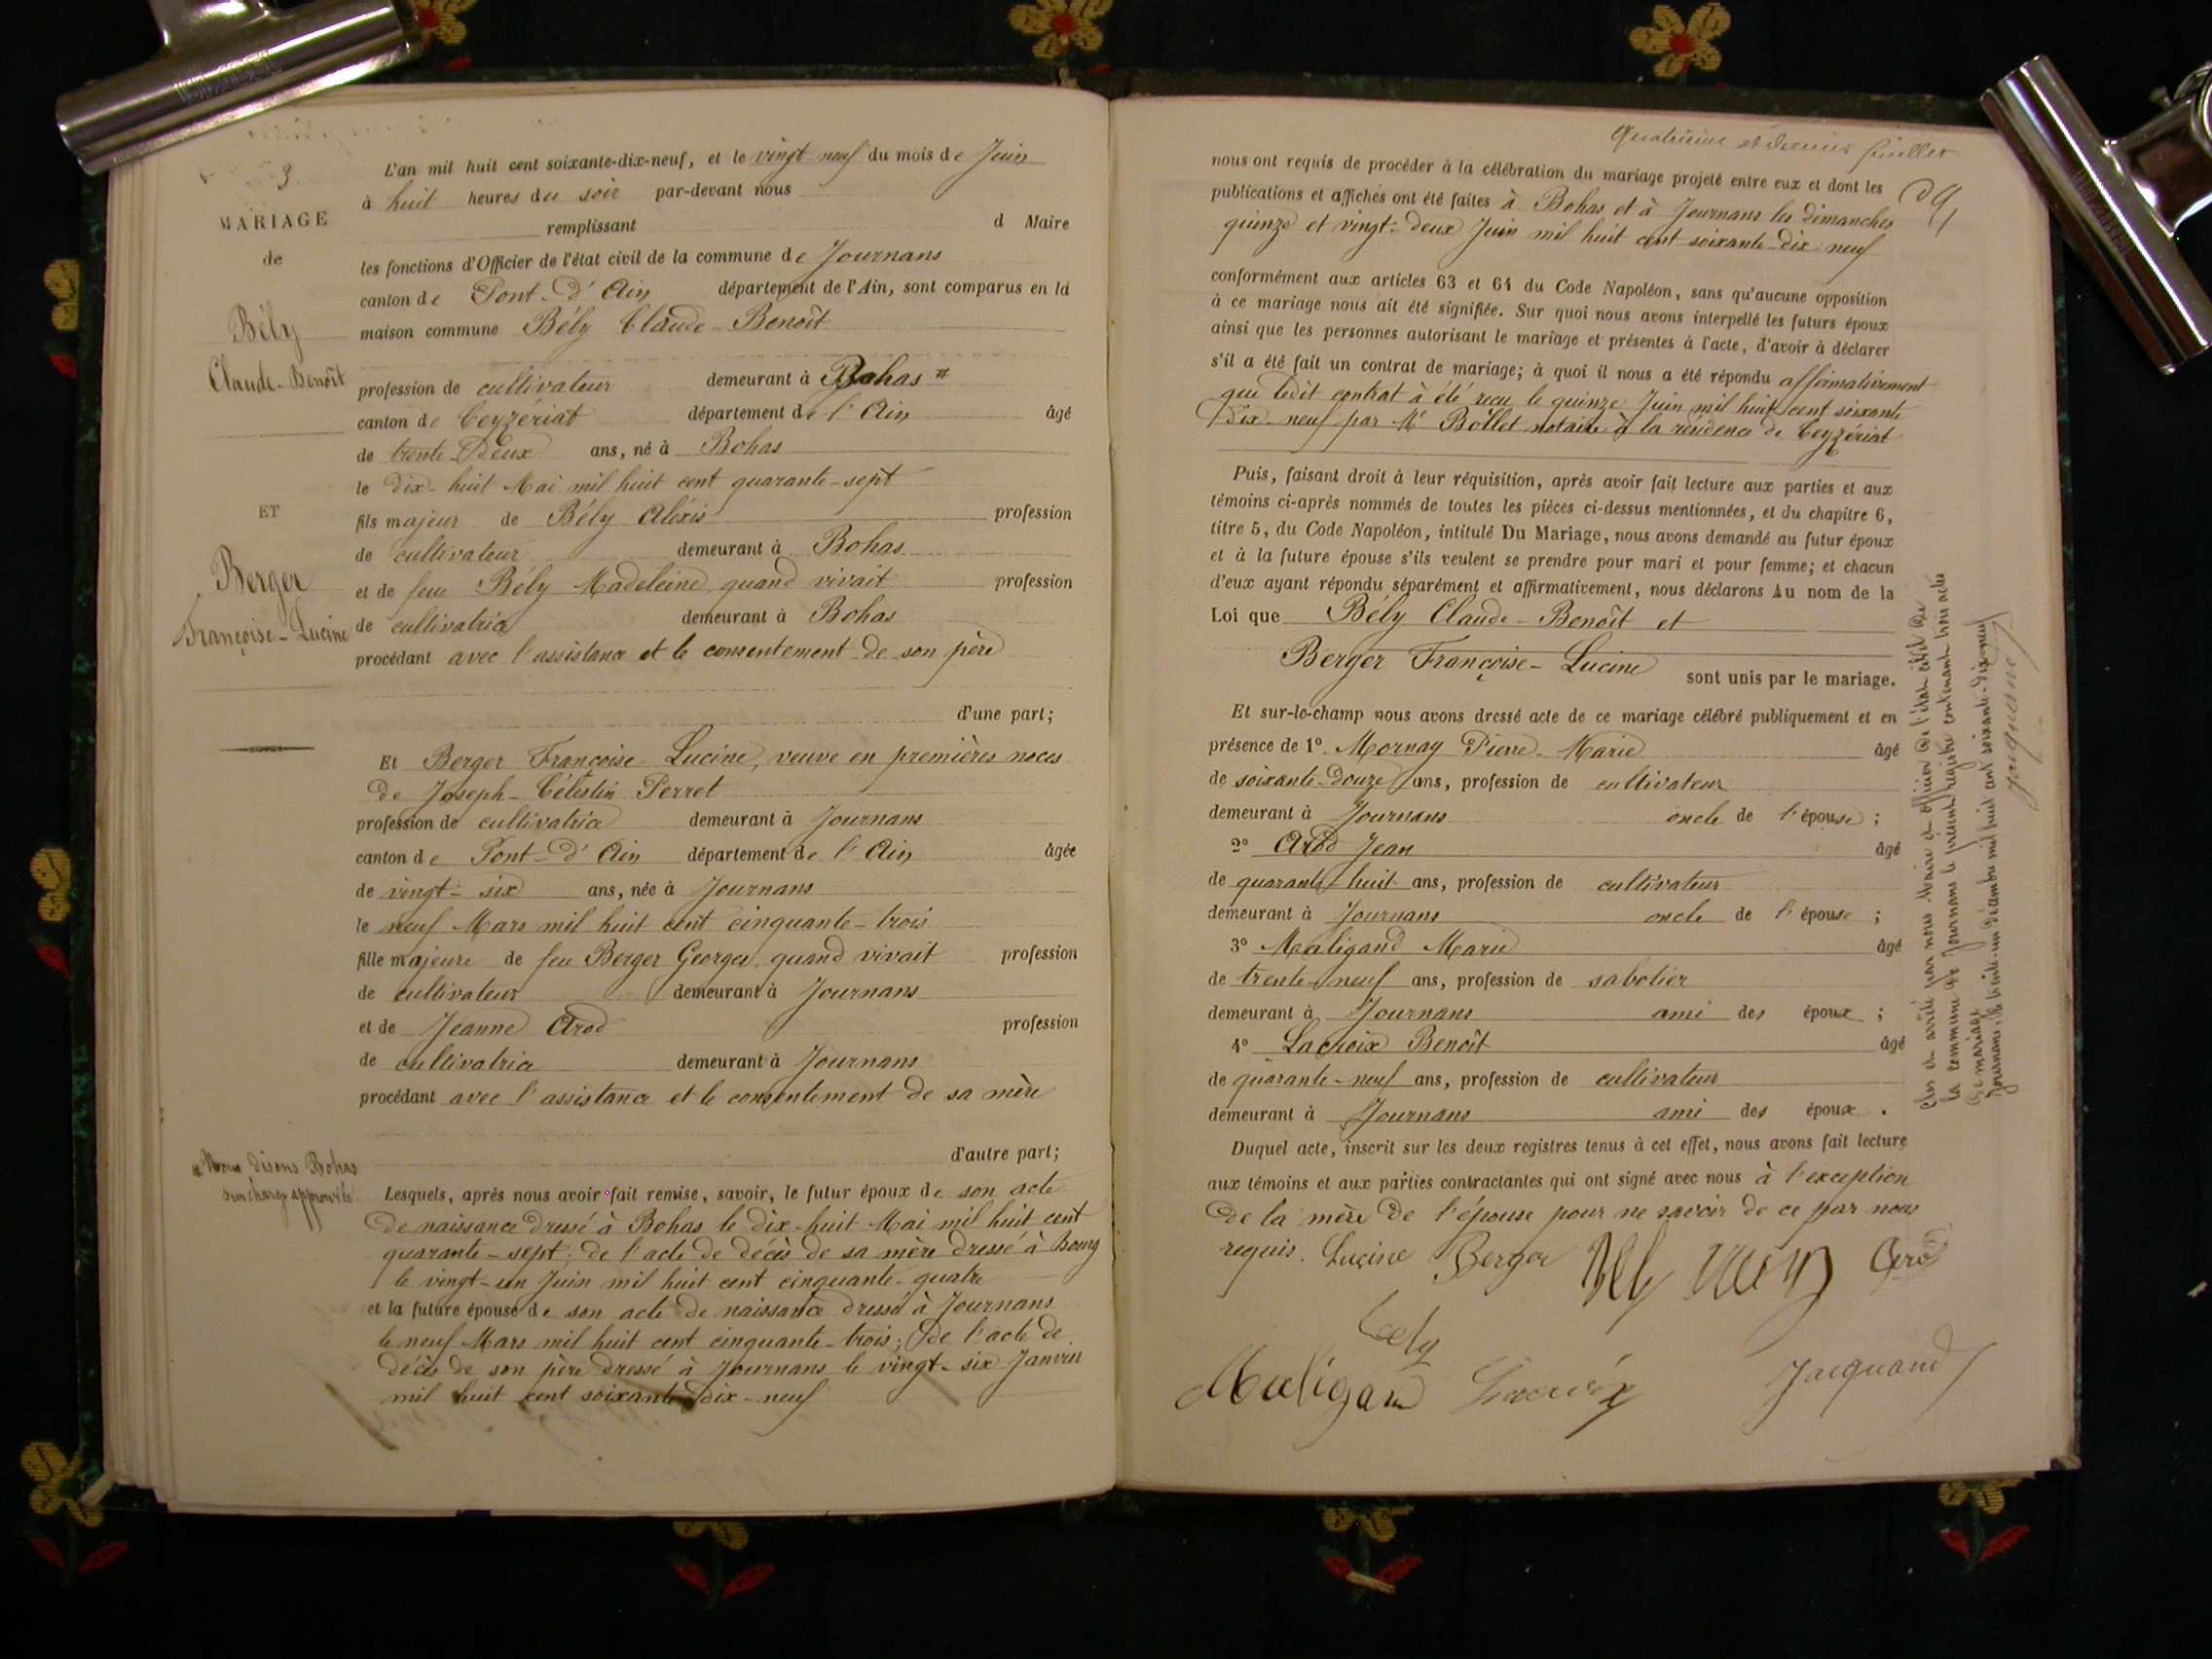 3
MARIAGE
de
Bély
Claude-Benoît
ET
Berger
Françoise-Lucine
L'an mil huit cent soixante-dix-neuf, et le vingt-neuf du mois de Juin
à huit heures du soir par-devant nous
remplissant d Maire
les fonctions d'Officier de l'état civil de la commune de Journans
canton de Pont-d'Ain département de l'Ain, sont comparus en la
maison commune Bély Claude-Benoît
profession de cultivateur demeurant à Bohas #
canton de Ceyzériat département de l'Ain âgé
de trente-deux ans, né à Bohas
le dix-huit Mai mil huit cent quarante-sept
fils majeur de Bély Alexis profession
de cultivateur demeurant à Bohas
et de feue Bély Madeleine quand vivait profession
de cultivatrice demeurant à Bohas
procédant avec l'assistance et le consentement de son père
d'une part;
Et Berger Françoise Lucine, veuve en premières noces
de Joseph-Célestin Perret
profession de cultivatrice demeurant à Journans
canton de Pont-d'Ain département de l'Ain âgée
de vingt-six ans, née à Journans
le neuf Mars mil huit cent cinquante-trois
fille majeure de feu Berger George, quand vivait profession
de cultivateur demeurant à Journans
et de Jeanne Arod profession
de cultivatrice demeurant à Journans
procédant avec l'assistance et le consentement de sa mère
d'autre part;
# Nous disons Bohas
surcharge approuvée.
Lesquels, après nous avoir fait remise, savoir, le futur époux de son acte
de naissance dressé à Bohas le dix-huit Mai mil huit cent
quarante-sept; de l'acte de décès de sa mère dressé à Bourg
le vingt-un Juin mil huit cent cinquante-quatre
et la future épouse de son acte de naissance dressé à Journans
le neuf Mars mil huit cent cinquante-trois; de l'acte de
décès de son père dressé à Journans le vingt-six Janvier
mil huit cent soixante-dix-neuf
Quatrième et dernier feuillet
nous ont requis de procéder à la célébration du mariage projeté entre eux et dont les
publications et affiches ont été faites à Bohas et à Journans les dimanches
quinze et vingt-deux Juin mil huit cent soixante-dix-neuf
conformément aux articles 63 et 64 du Code Napoléon, sans qu'aucune opposition
à ce mariage nous ait été signifiée. Sur quoi nous avons interpellé les futurs époux
ainsi que les personnes autorisant le mariage et présentes à l'acte, d'avoir à déclarer
s'il a été fait un contrat de mariage; à quoi il nous a été répondu affirmativement
que ledit contrat à été reçu le quinze Juin mil huit cent soixante
dix-neuf par Me Bollet notaire à la résidence de Ceyzériat
Puis, faisant droit à leur réquisition, après avoir fait lecture aux parties et aux
témoins ci-après nommés de toutes les pièces ci-dessus mentionnées, et du chapitre 6,
titre 5, du Code Napoléon, intitulé Du Mariage, nous avons demandé au futur époux
et à la future épouse s'ils veulent se prendre pour mari et pour femme; et chacun
d'eux ayant répondu séparément et affirmativement, nous déclarons Au nom de la
Loi que Bély Claude-Benoît et
Berger Françoise-Lucine sont unis par le mariage.
Et sur-le-champ nous avons dressé acte de ce mariage célébré publiquement et en
présence de 1° Mornay Pierre-Marie âgé
de soixante-douze ans, profession de cultivateur
demeurant à Journans oncle de l'épouse;
2° Arod Jean âgé
de quarante-huit ans, profession de cultivateur
demeurant à Journans oncle de l'épouse;
3° Maligand Marie âgé
de trente-neuf ans, profession de sabotier
demeurant à Journans ami des époux;
4° Lacroix Benoît âgé
de quarante-neuf ans, profession de cultivateur
demeurant à Journans ami des époux.
Duquel acte, inscrit sur les deux registres tenus à cet effet, nous avons fait lecture
aux témoins et aux parties contractantes qui ont signé avec nous à l'exception
de la mère de l'épouse pour ne savoir de ce par nous
requis. Lucine Berger Arod
Bely
Maligand Lacroix Jacquand
Clos et arrêté par nous Maire et officier de l'état civil de
la commune de Journans le présent registre contenant trois actes
de mariage
Journans, le trente-un décembre mil huit cent soixante-dix-neuf
Jacquand